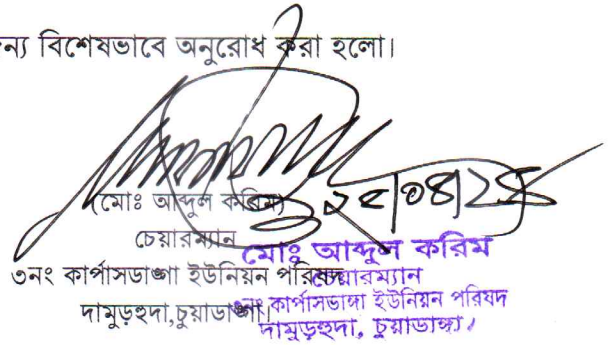 ন্য বিশেষভাবে অনুরোধ করা হলো।
(মোঃ আব্দুল করিম)
চেয়ারম্যান
৩নং কার্পাসডাঙ্গা ইউনিয়ন পরিষদ
দামুড়হুদা,চুয়াডাঙ্গা।
মোঃ আব্দুল করিম
চেয়ারম্যান
৩নং কার্পাসডাঙ্গা ইউনিয়ন পরিষদ
দামুড়হুদা, চুয়াডাঙ্গা।